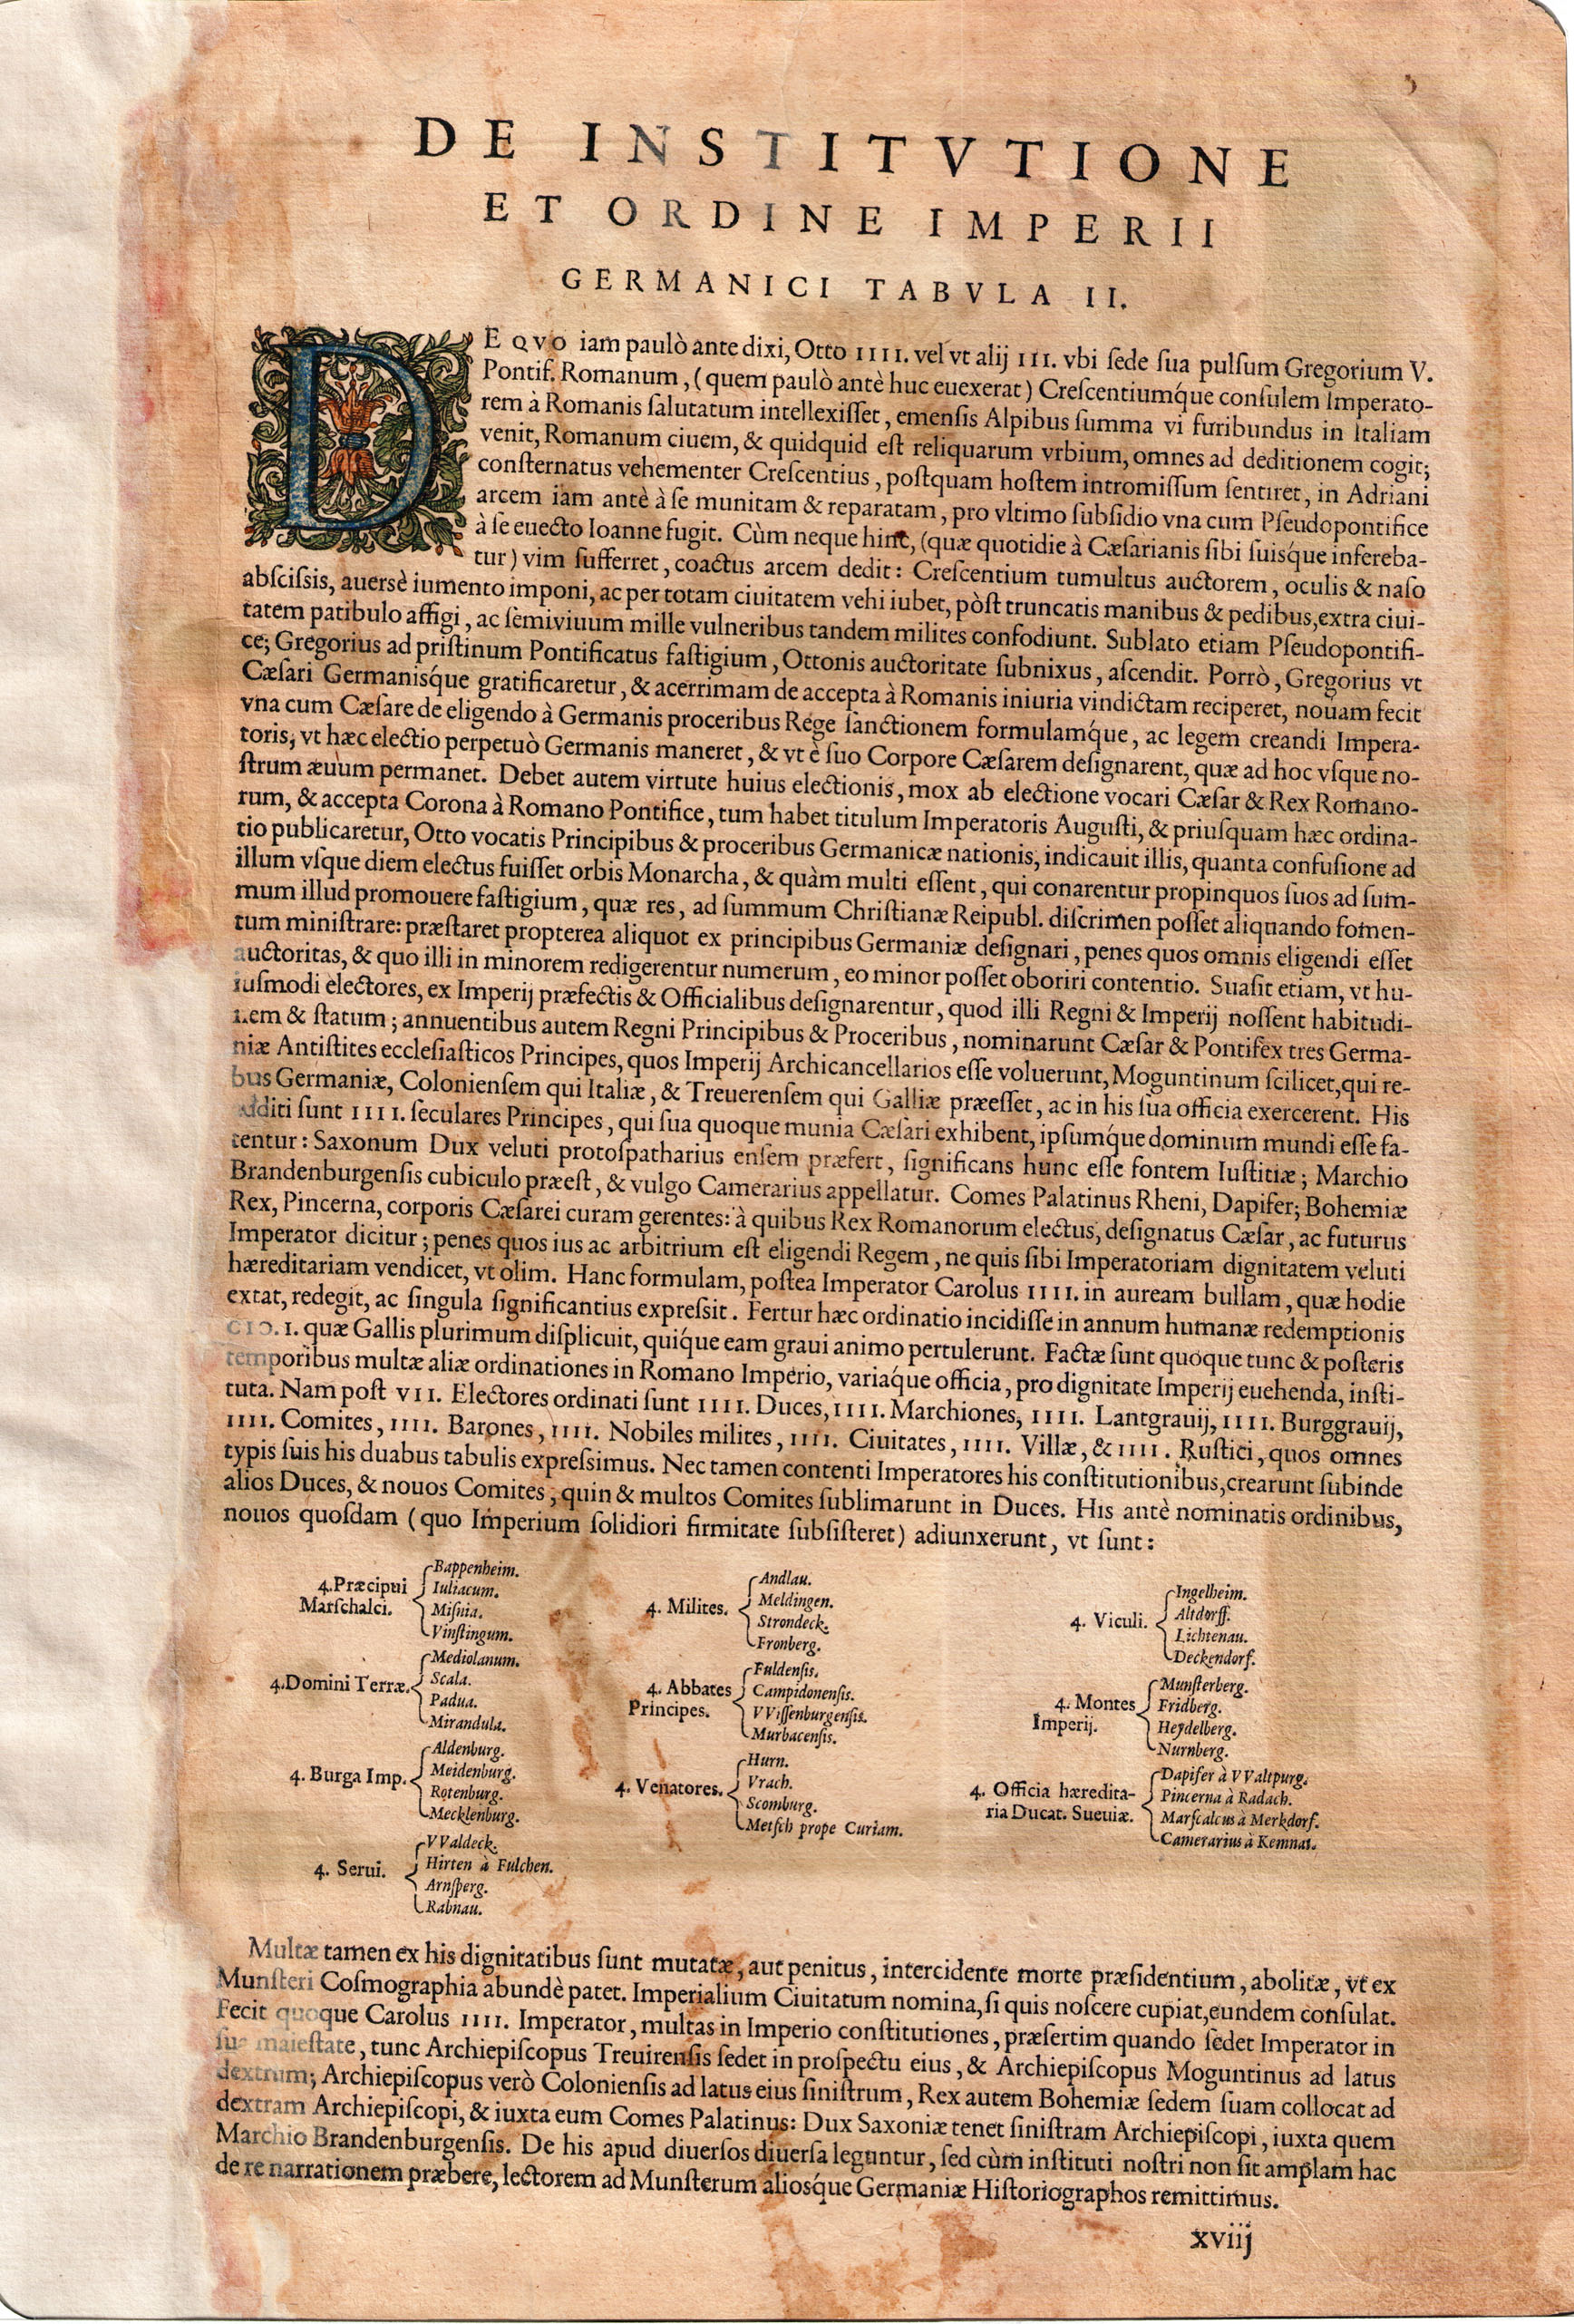 DE INSTITVTIONE
ET ORDINE IMPERII
GERMANICI TABVLA II.
DE QVO iam paulò ante dixi, Otto IIII. vel vt alij III. vbi sede sua pulsum Gregorium V.
Pontif. Romanum, (quem paulò antè huc euexerat) Crescentiumq́ue consulem Imperato-
rem à Romanis salutatum intellexisset, emensis Alpibus summa vi furibundus in Italiam
venit, Romanum ciuem, & quidquid est reliquarum vrbium, omnes ad deditionem cogit;
consternatus vehementer Crescentius, postquam hostem intromissum sentiret, in Adriani
arcem iam antè à se munitam & reparatam, pro vltimo subsidio vna cum Pseudopontifice
à se euecto Ioanne fugit. Cùm neque hinc, (quæ quotidie à Cæsarianis sibi suisq́ue infereba-
tur) vim sufferret, coactus arcem dedit: Crescentium tumultus auctorem, oculis & naso
abscissis, auersè iumento imponi, ac per totam ciuitatem vehi iubet, pòst truncatis manibus & pedibus, extra ciui-
tatem patibulo affigi, ac semiviuum mille vulneribus tandem milites confodiunt. Sublato etiam Pseudopontifi-
ce; Gregorius ad pristinum Pontificatus fastigium, Ottonis auctoritate subnixus, ascendit. Porrò, Gregorius vt
Cæsari Germanisq́ue gratificaretur, & acerrimam de accepta à Romanis iniuria vindictam reciperet, nouam fecit
vna cum Cæsare de eligendo à Germanis proceribus Rege sanctionem formulamq́ue, ac legem creandi Impera-
toris, vt hæc electio perpetuò Germanis maneret, & vt è suo Corpore Cæsarem designarent, quæ ad hoc vsque no-
strum æuum permanet. Debet autem virtute huius electionis, mox ab electione vocari Cæsar & Rex Romano-
rum, & accepta Corona à Romano Pontifice, tum habet titulum Imperatoris Augusti, & priusquam hæc ordina-
tio publicaretur, Otto vocatis Principibus & proceribus Germanicæ nationis, indicauit illis, quanta confusione ad
illum vsque diem electus fuisset orbis Monarcha, & quàm multi essent, qui conarentur propinquos suos ad sum-
mum illud promouere fastigium, quæ res, ad summum Christianæ Reipubl. discrimen posset aliquando fomen-
tum ministrare: præstaret propterea aliquot ex principibus Germaniæ designari, penes quos omnis eligendi esset
auctoritas, & quo illi in minorem redigerentur numerum, eo minor posset oboriri contentio. Suasit etiam, vt hu-
iusmodi electores, ex Imperij præfectis & Officialibus designarentur, quod illi Regni & Imperij nossent habitudi-
nem & statum; annuentibus autem Regni Principibus & Proceribus, nominarunt Cæsar & Pontifex tres Germa-
niæ Antistites ecclesiasticos Principes, quos Imperij Archicancellarios esse voluerunt, Moguntinum scilicet, qui re-
bus Germaniæ, Coloniensem qui Italiæ, & Treuerensem qui Galliæ præesset, ac in his sua officia exercerent. His
additi sunt IIII. seculares Principes, qui sua quoque munia Cæsari exhibent, ipsumq́ue dominum mundi esse fa-
tentur: Saxonum Dux veluti protospatharius ensem præfert, significans hunc esse fontem Iustitiæ; Marchio
Brandenburgensis cubiculo præest, & vulgo Camerarius appellatur. Comes Palatinus Rheni, Dapifer; Bohemiæ
Rex, Pincerna, corporis Cæsarei curam gerentes: à quibus Rex Romanorum electus, designatus Cæsar, ac futurus
Imperator dicitur; penes quos ius ac arbitrium est eligendi Regem, ne quis sibi Imperatoriam dignitatem veluti
hæreditariam vendicet, vt olim. Hanc formulam, postea Imperator Carolus IIII. in auream bullam, quæ hodie
extat, redegit, ac singula significantius expressit. Fertur hæc ordinatio incidisse in annum humanæ redemptionis
CIↃ. I. quæ Gallis plurimum displicuit, quiq́ue eam graui animo pertulerunt. Factæ sunt quoque tunc & posteris
temporibus multæ aliæ ordinationes in Romano Imperio, variaq́ue officia, pro dignitate Imperij euehenda, insti-
tuta. Nam post VII. Electores ordinati sunt IIII. Duces, IIII. Marchiones, IIII. Lantgrauij, IIII. Burggrauij,
IIII. Comites, IIII. Barones, IIII. Nobiles milites, IIII. Ciuitates, IIII. Villæ, & IIII. Rustici, quos omnes
typis suis his duabus tabulis expressimus. Nec tamen contenti Imperatores his constitutionibus, crearunt subinde
alios Duces, & nouos Comites, quin & multos Comites sublimarunt in Duces. His antè nominatis ordinibus,
nouos quosdam (quo Imperium solidiori firmitate subsisteret) adiunxerunt, vt sunt:
4. Præcipui
Marschalci.
Bappenheim.
Iuliacum.
Misnia.
Vinstingum.
4. Domini Terræ.
Mediolanum.
Scala.
Padua.
Mirandula.
4. Burga Imp.
Aldenburg.
Meidenburg.
Rotenburg.
Mecklenburg.
4. Serui.
VValdeck.
Hirten à Fulchen.
Arnsperg.
Rabnau.
4. Milites.
Andlau.
Meldingen.
Strondeck.
Fronberg.
4. Abbates
Principes.
Fuldensis.
Campidonensis.
VVissenburgensis.
Murbacensis.
4. Venatores.
Hurn.
Vrach.
Scomburg.
Metsch prope Curiam.
4. Viculi.
Ingelheim.
Altdorff.
Lichtenau.
Deckendorf.
4. Montes
Imperij.
Munsterberg.
Fridberg.
Heydelberg.
Nurnberg.
4. Officia hæredita-
ria Ducat. Sueuiæ.
Dapifer à VValtpurg.
Pincerna à Radach.
Marscalcus à Merkdorf.
Camerarius à Kemnat.
Multæ tamen ex his dignitatibus sunt mutatæ, aut penitus, intercidente morte præsidentium, abolitæ, vt ex
Munsteri Cosmographia abundè patet. Imperialium Ciuitatum nomina, si quis noscere cupiat, eundem consulat.
Fecit quoque Carolus IIII. Imperator, multas in Imperio constitutiones, præsertim quando sedet Imperator in
sua maiestate, tunc Archiepiscopus Treuirensis sedet in prospectu eius, & Archiepiscopus Moguntinus ad latus
dextrum; Archiepiscopus verò Coloniensis ad latus eius sinistrum, Rex autem Bohemiæ sedem suam collocat ad
dextram Archiepiscopi, & iuxta eum Comes Palatinus: Dux Saxoniæ tenet sinistram Archiepiscopi, iuxta quem
Marchio Brandenburgensis. De his apud diuersos diuersa leguntur, sed cùm instituti nostri non sit amplam hac
de re narrationem præbere, lectorem ad Munsterum aliosq́ue Germaniæ Historiographos remittimus.
xviij